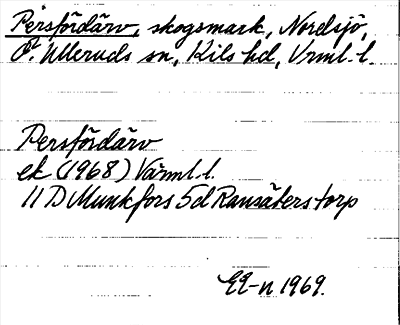 Persfördärv, skogsmark, Nordsjö,
Ö. Ulleruds sn, Kils hd, Vrml. l.
Persfördärv
ek (1968) Värml. l.
11 D Munkfors 5d Ransäterstorp
EE-n 1969.